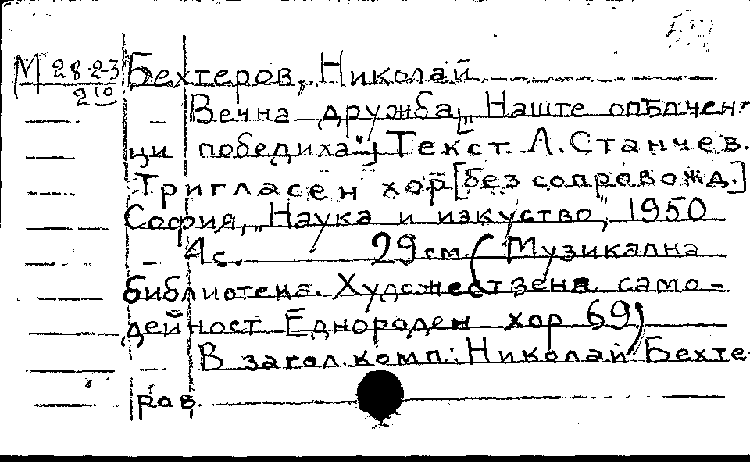 М 28-23 Бехтеров, Николай
210
Вечна дружба „Наште опълчен-
ци победиха“; Текст Л. Станчев.
Тригласен хор [без сопровожд.]
София, „Наука и изкуство“, 1950
4 с. 29 см (Музикална
библиотека. Художествена само-
дейност. Еднороден хор 69)
В загол. комп.: Николай Бехте
ров.